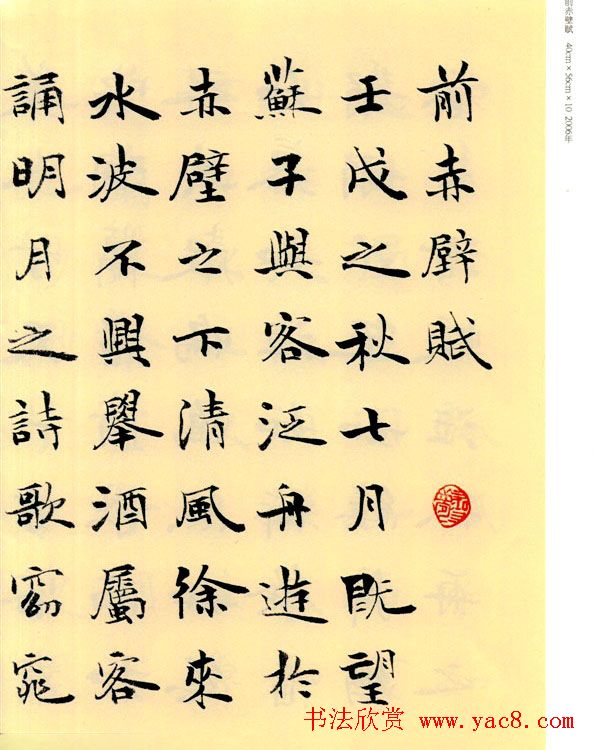 前赤壁赋 40cm×56cm×10 2006年
前赤壁賦
壬戌之秋七月既望
蘇子與客泛舟遊於
赤壁之下清風徐來
水波不興舉酒屬客
誦明月之詩歌窈窕
书法欣赏 www.yac8.com